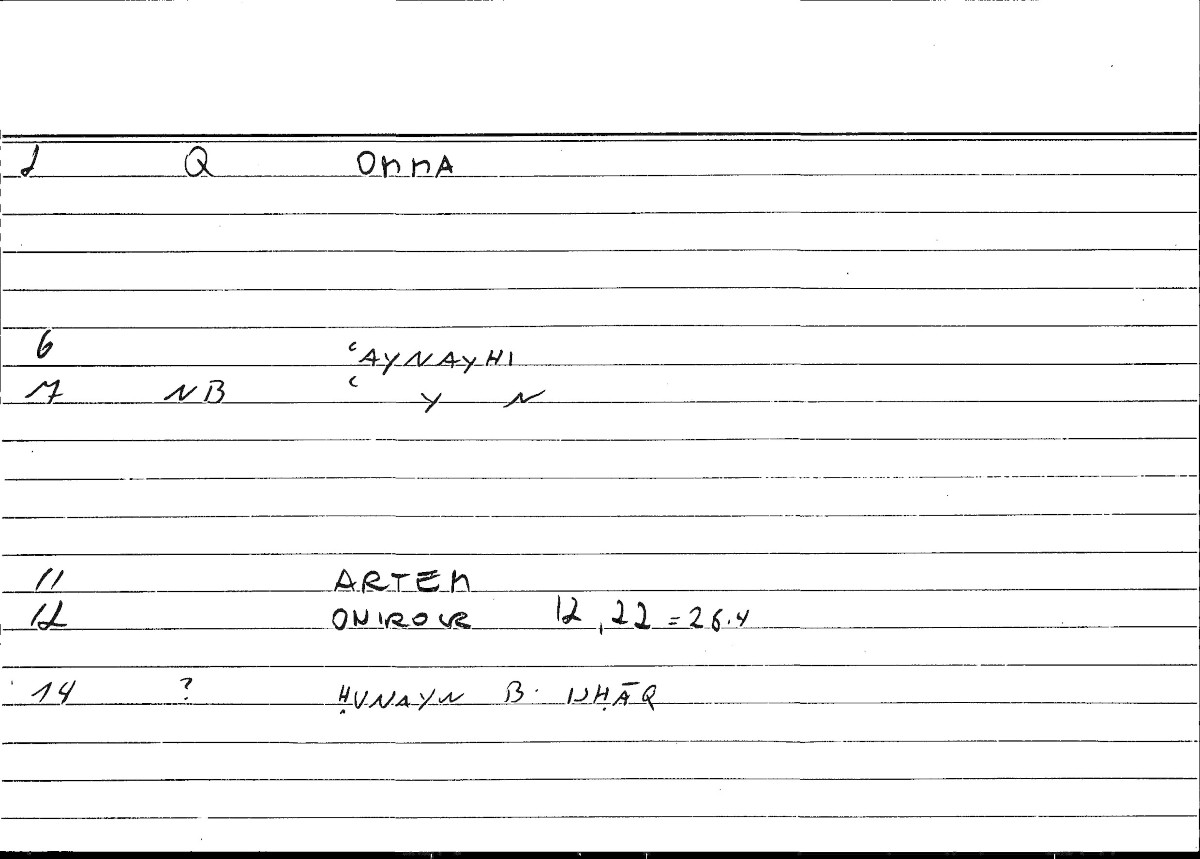 2 Q OMMA
6 ʿAYNAYHI
7 NB ʿ Y N
11 ARTEM
12 ONIROCR 12,22 = 26.4
14 ? ḤUNAYN B. ISḤĀQ